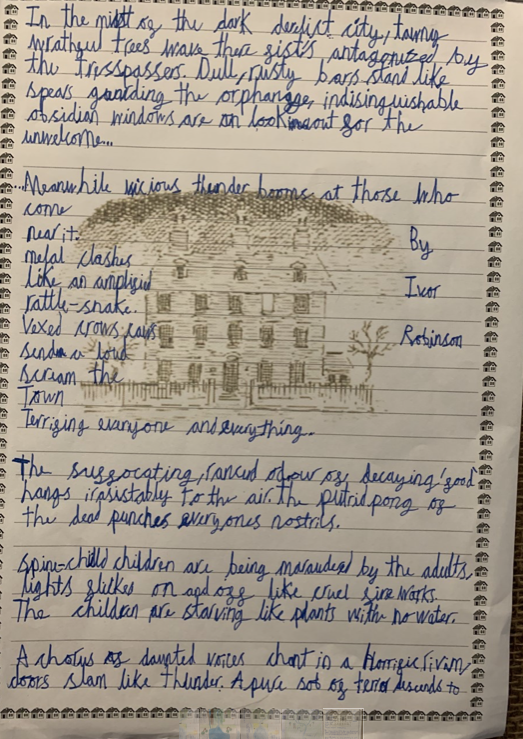 In the midst of the dark derlict city, tawny
wrathful trees wave there fists, antagonized by
the tresspassers. Dull, rusty bars stand like
spears guarding the orphanage, indisinguishable
obsidian windows are on look out for the
unwelcome...
...Meanwhile vicious thunder booms at those who
come
near it.
metal clashes
like an amplified
rattle-snake.
Vexed crows caws
send a loud
scream the
Town
Terrifing everyone and everything..
The suffocating, rancid odour of decaying food
hangs irrasistably to the air. The putrid pong of
the dead punches everyones nostrils.
children are being marauded by the adults,
lights on and off like cruel fire works.
The children are starving like plants with no water.
A chorus of daunted voices chant in a
doors slam like thunder. A pure sob of terror descends to
By
Ivor
Robinson